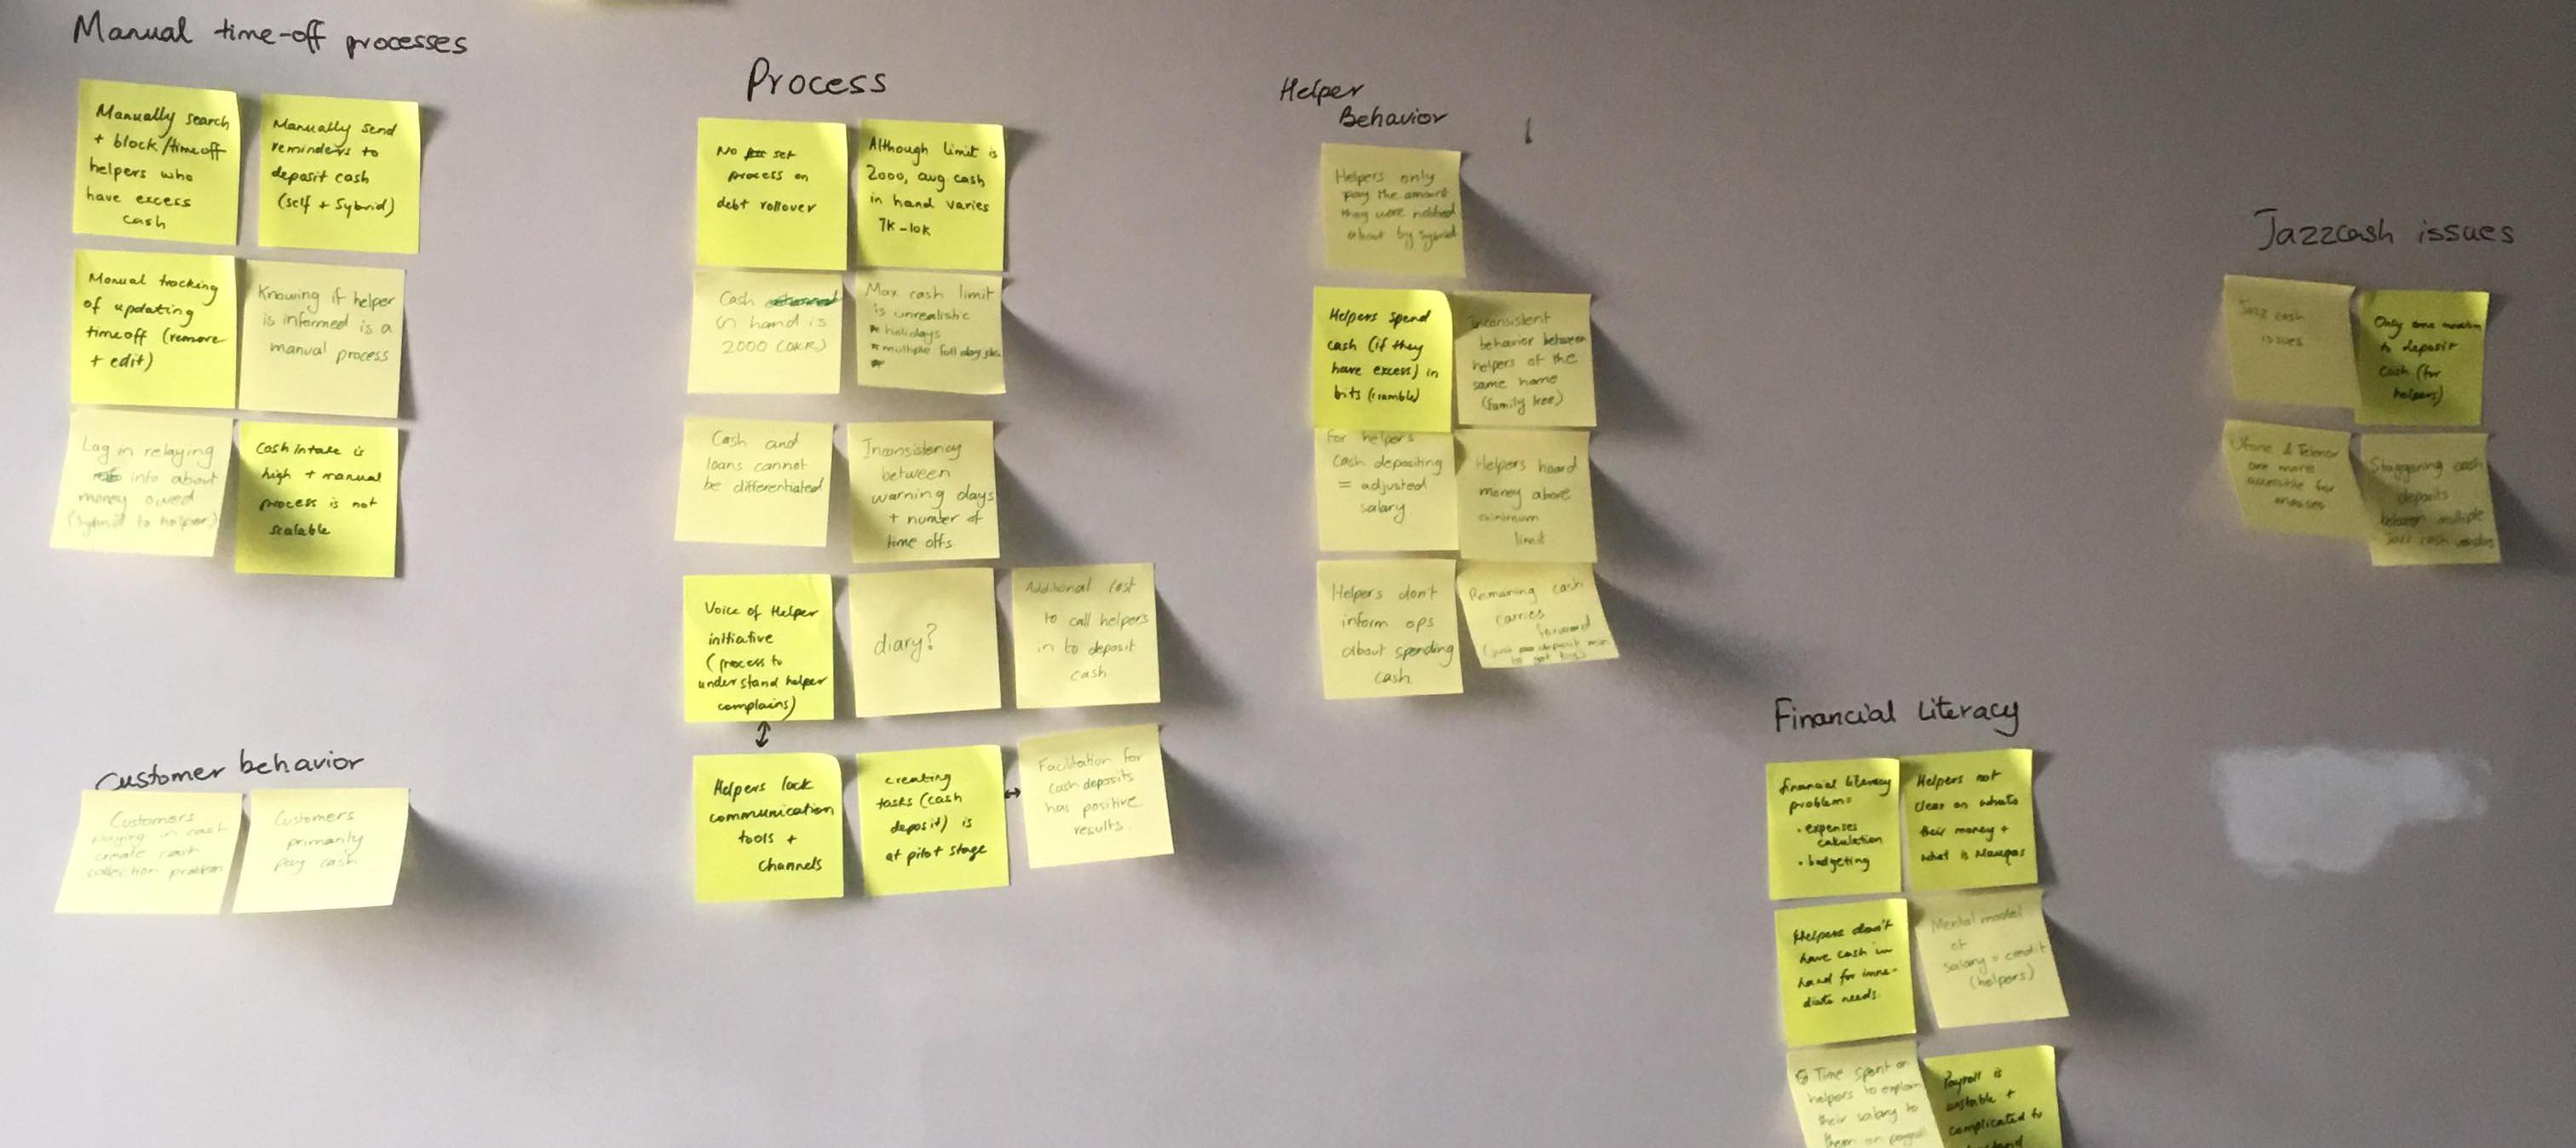 Manual time-off processes
Manually search
+ block/timeoff
helpers who
have excess
cash
Manually send
reminders to
deposit cash
(self + Sybrid)
Manual tracking
of updating
timeoff (remove
+ edit)
Knowing if helper
is informed is a
manual process
Lag in relaying
info about
money owed
(Sybrid to helper)
Cash intake is
high + manual
process is not
scalable
Customer behavior
Customers
paying in cash
create cash
collection problem
Customers
primarily
pay cash
Process
No set
process on
debt rollover
Although limit is
2000, avg cash
in hand varies
7k-10k
Cash
in hand is
2000 (OKR)
Max cash limit
is unrealistic
* holidays
* multiple full day jobs
*
Cash and
loans cannot
be differentiated
Inconsistency
between
warning days
+ number of
time offs
Voice of Helper
initiative
(process to
understand helper
complains)
diary?
Additional cost
to call helpers
in to deposit
cash
Helpers lack
communication
tools +
channels
creating
tasks (cash
deposit) is
at pilot stage
Facilitation for
cash deposits
has positive
results
Helper
Behavior
Helpers only
pay the amount
they were notified
about by sybrid
Helpers spend
cash (if they
have excess) in
bits
Inconsistent
behavior between
helpers of the
same home
(family tree)
For helpers
cash depositing
= adjusted
salary
Helpers hoard
money above
minimum
limit
Helpers don't
inform ops
about spending
cash
Remaining cash
carries
forward
(just deposit min
to get
Jazzcash issues
Jazz cash
issues
Only one
to deposit
cash (for
helpers)
Ufone & Telenor
are more
accessible for
masses
Staggering cash
deposits
between multiple
Jazz cash vendors
Financial Literacy
financial literacy
problems
• expenses
calculation
• budgeting
Helpers not
clear on what's
their money +
what is Mauqas
Helpers don't
have cash in
hand for imme-
diate needs.
Mental model
of
salary = credit
(helpers)
Time spent on
helpers to explain
their salary to
them on payroll
Payroll is
unstable +
complicated to